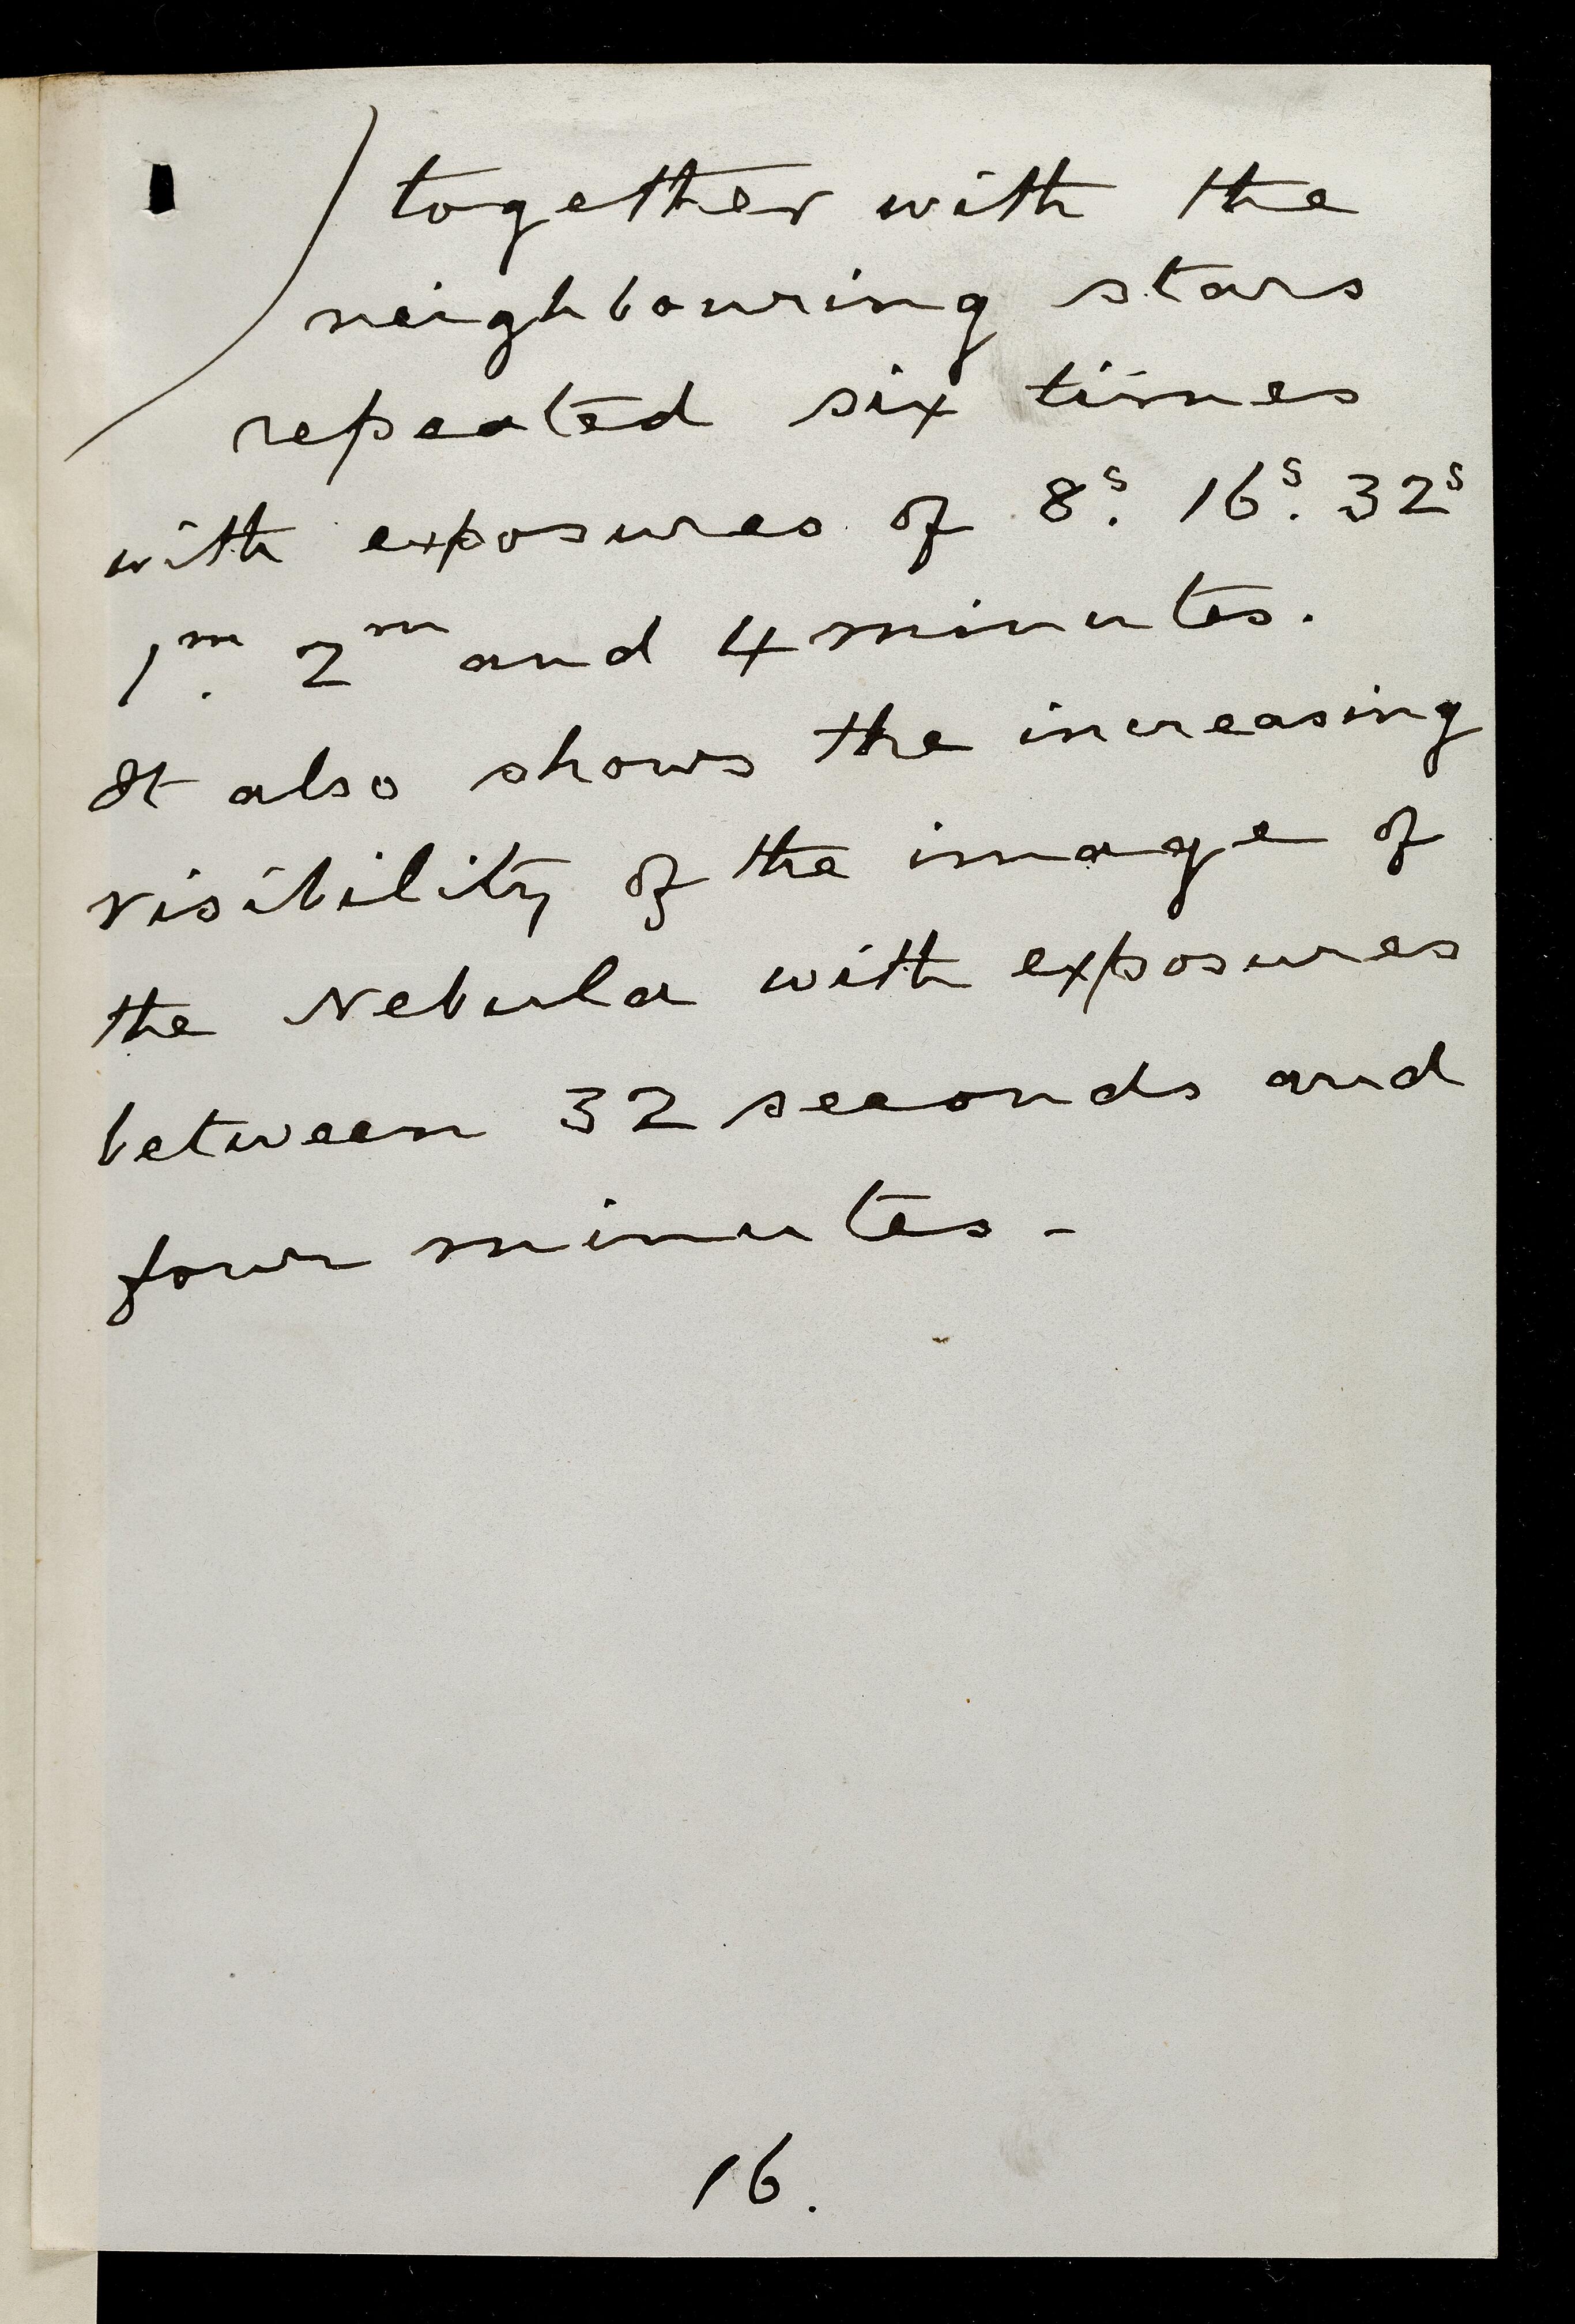 together with the
neighbouring stars
repeated six times
with exposures of 8ˢ. 16ˢ. 32ˢ
1ᵐ. 2ᵐ and 4 minutes.
It also shows the increasing
visibility of the image of
the Nebula with exposures
between 32 seconds and
four minutes -
16.